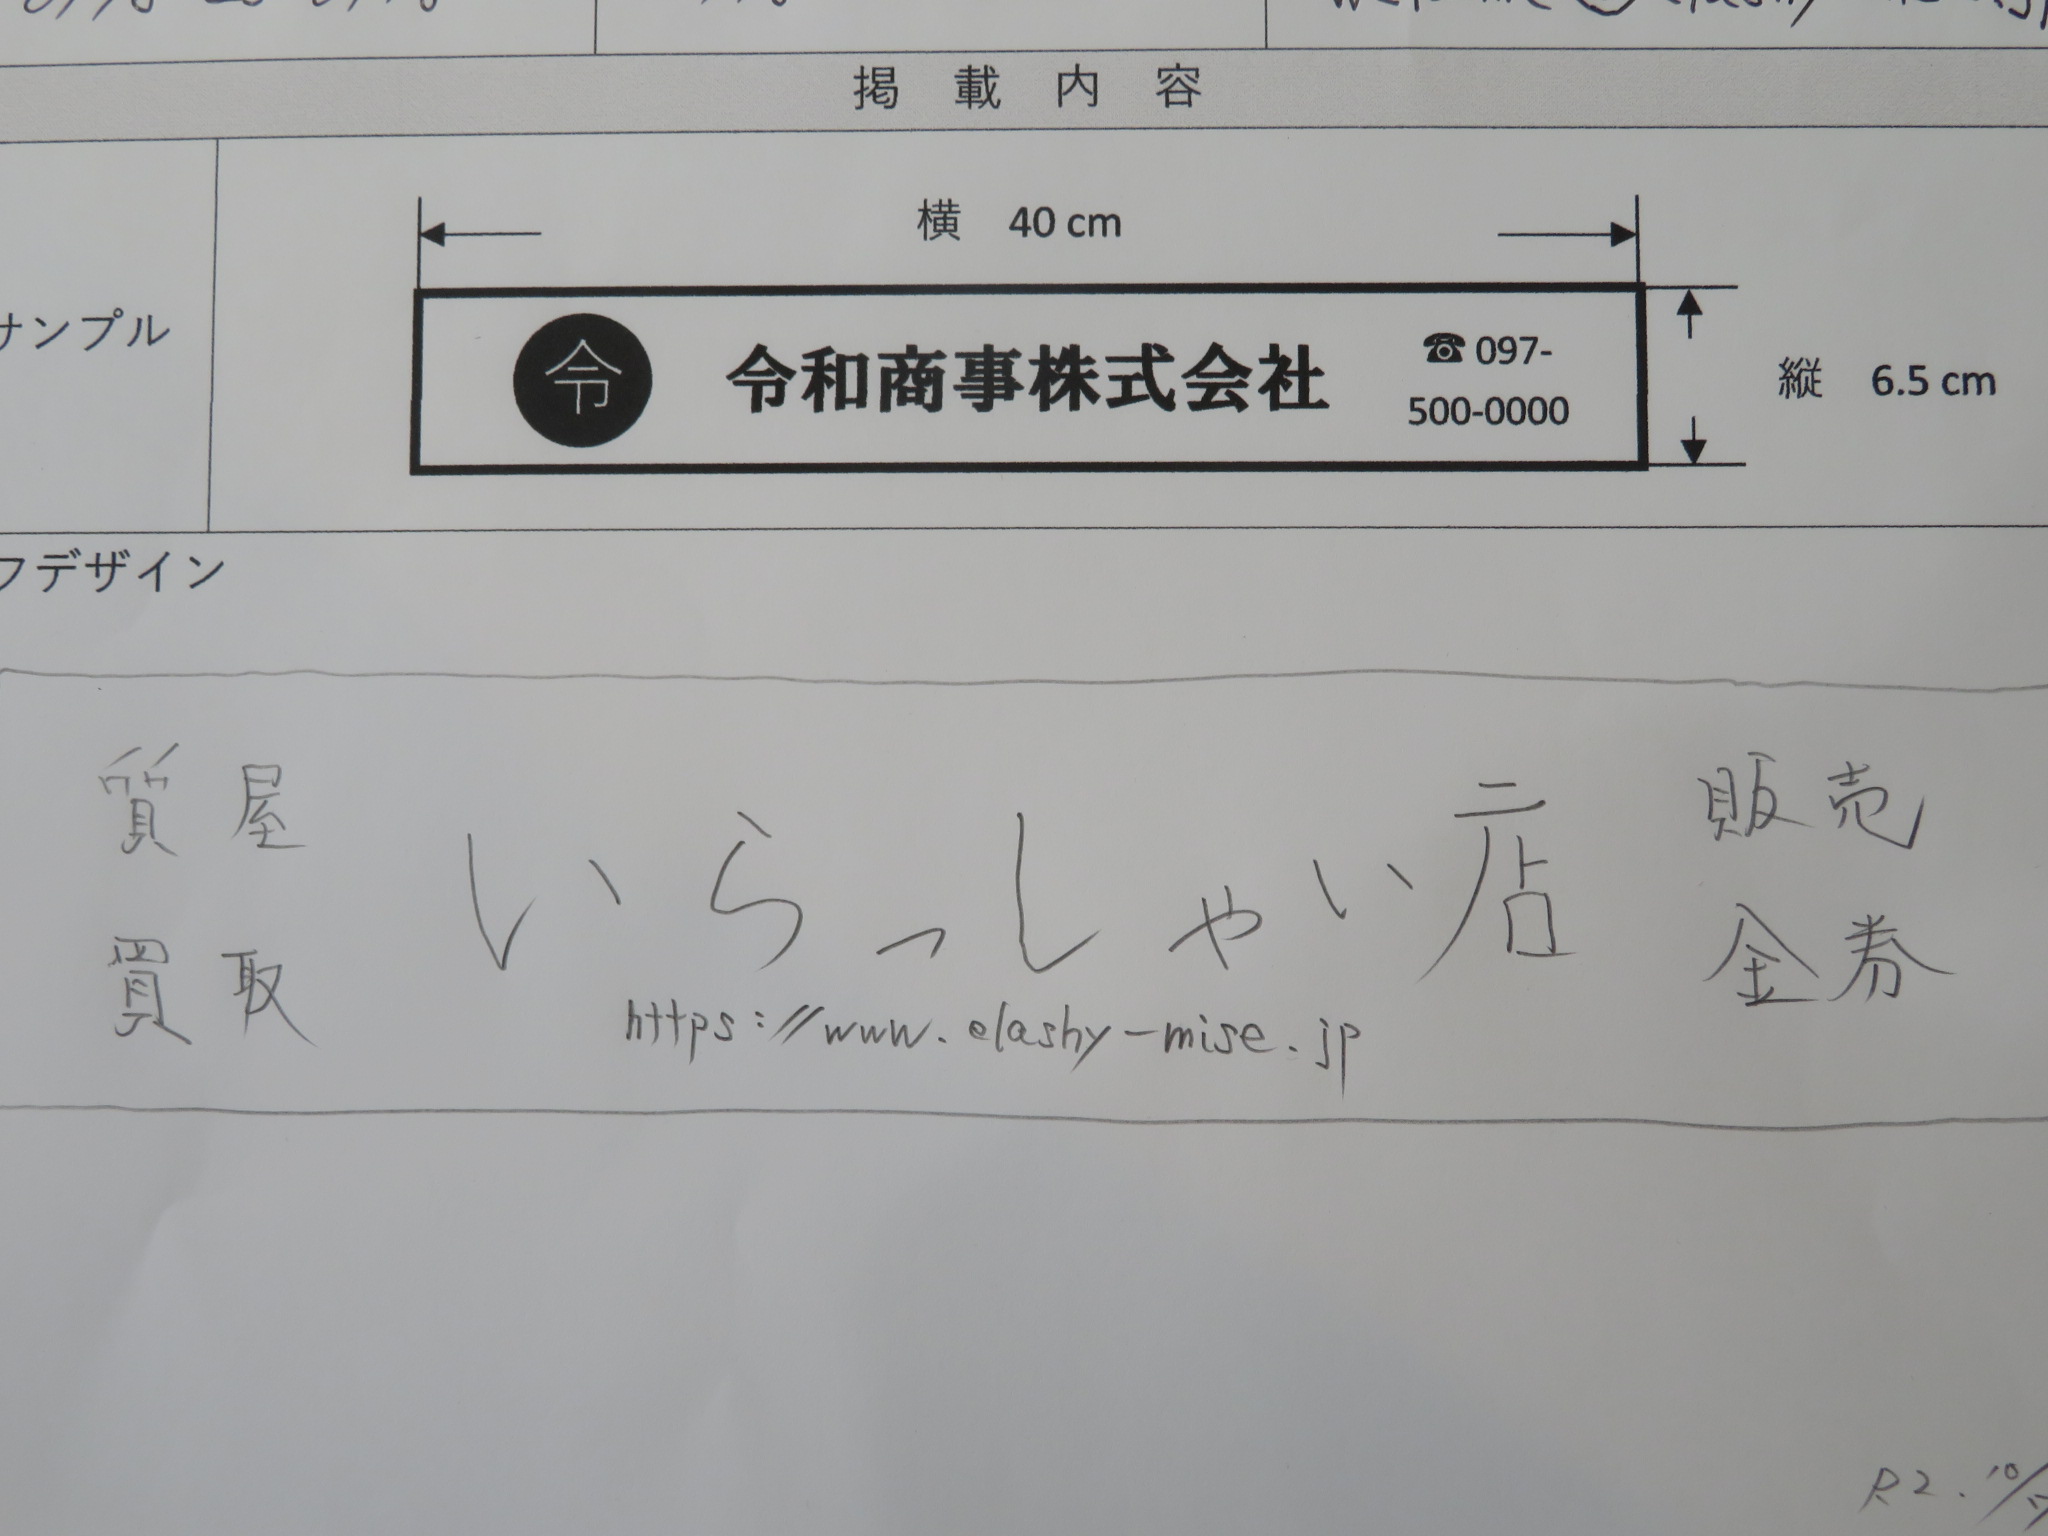 掲載内容
横 40 cm
サンプル
令 令和商事株式会社 ☎ 097-
500-0000
縦 6.5 cm
フデザイン
質屋 販売
いらっしゃい店
買取 金券
https://www.elashy-mise.jp
R2.10/